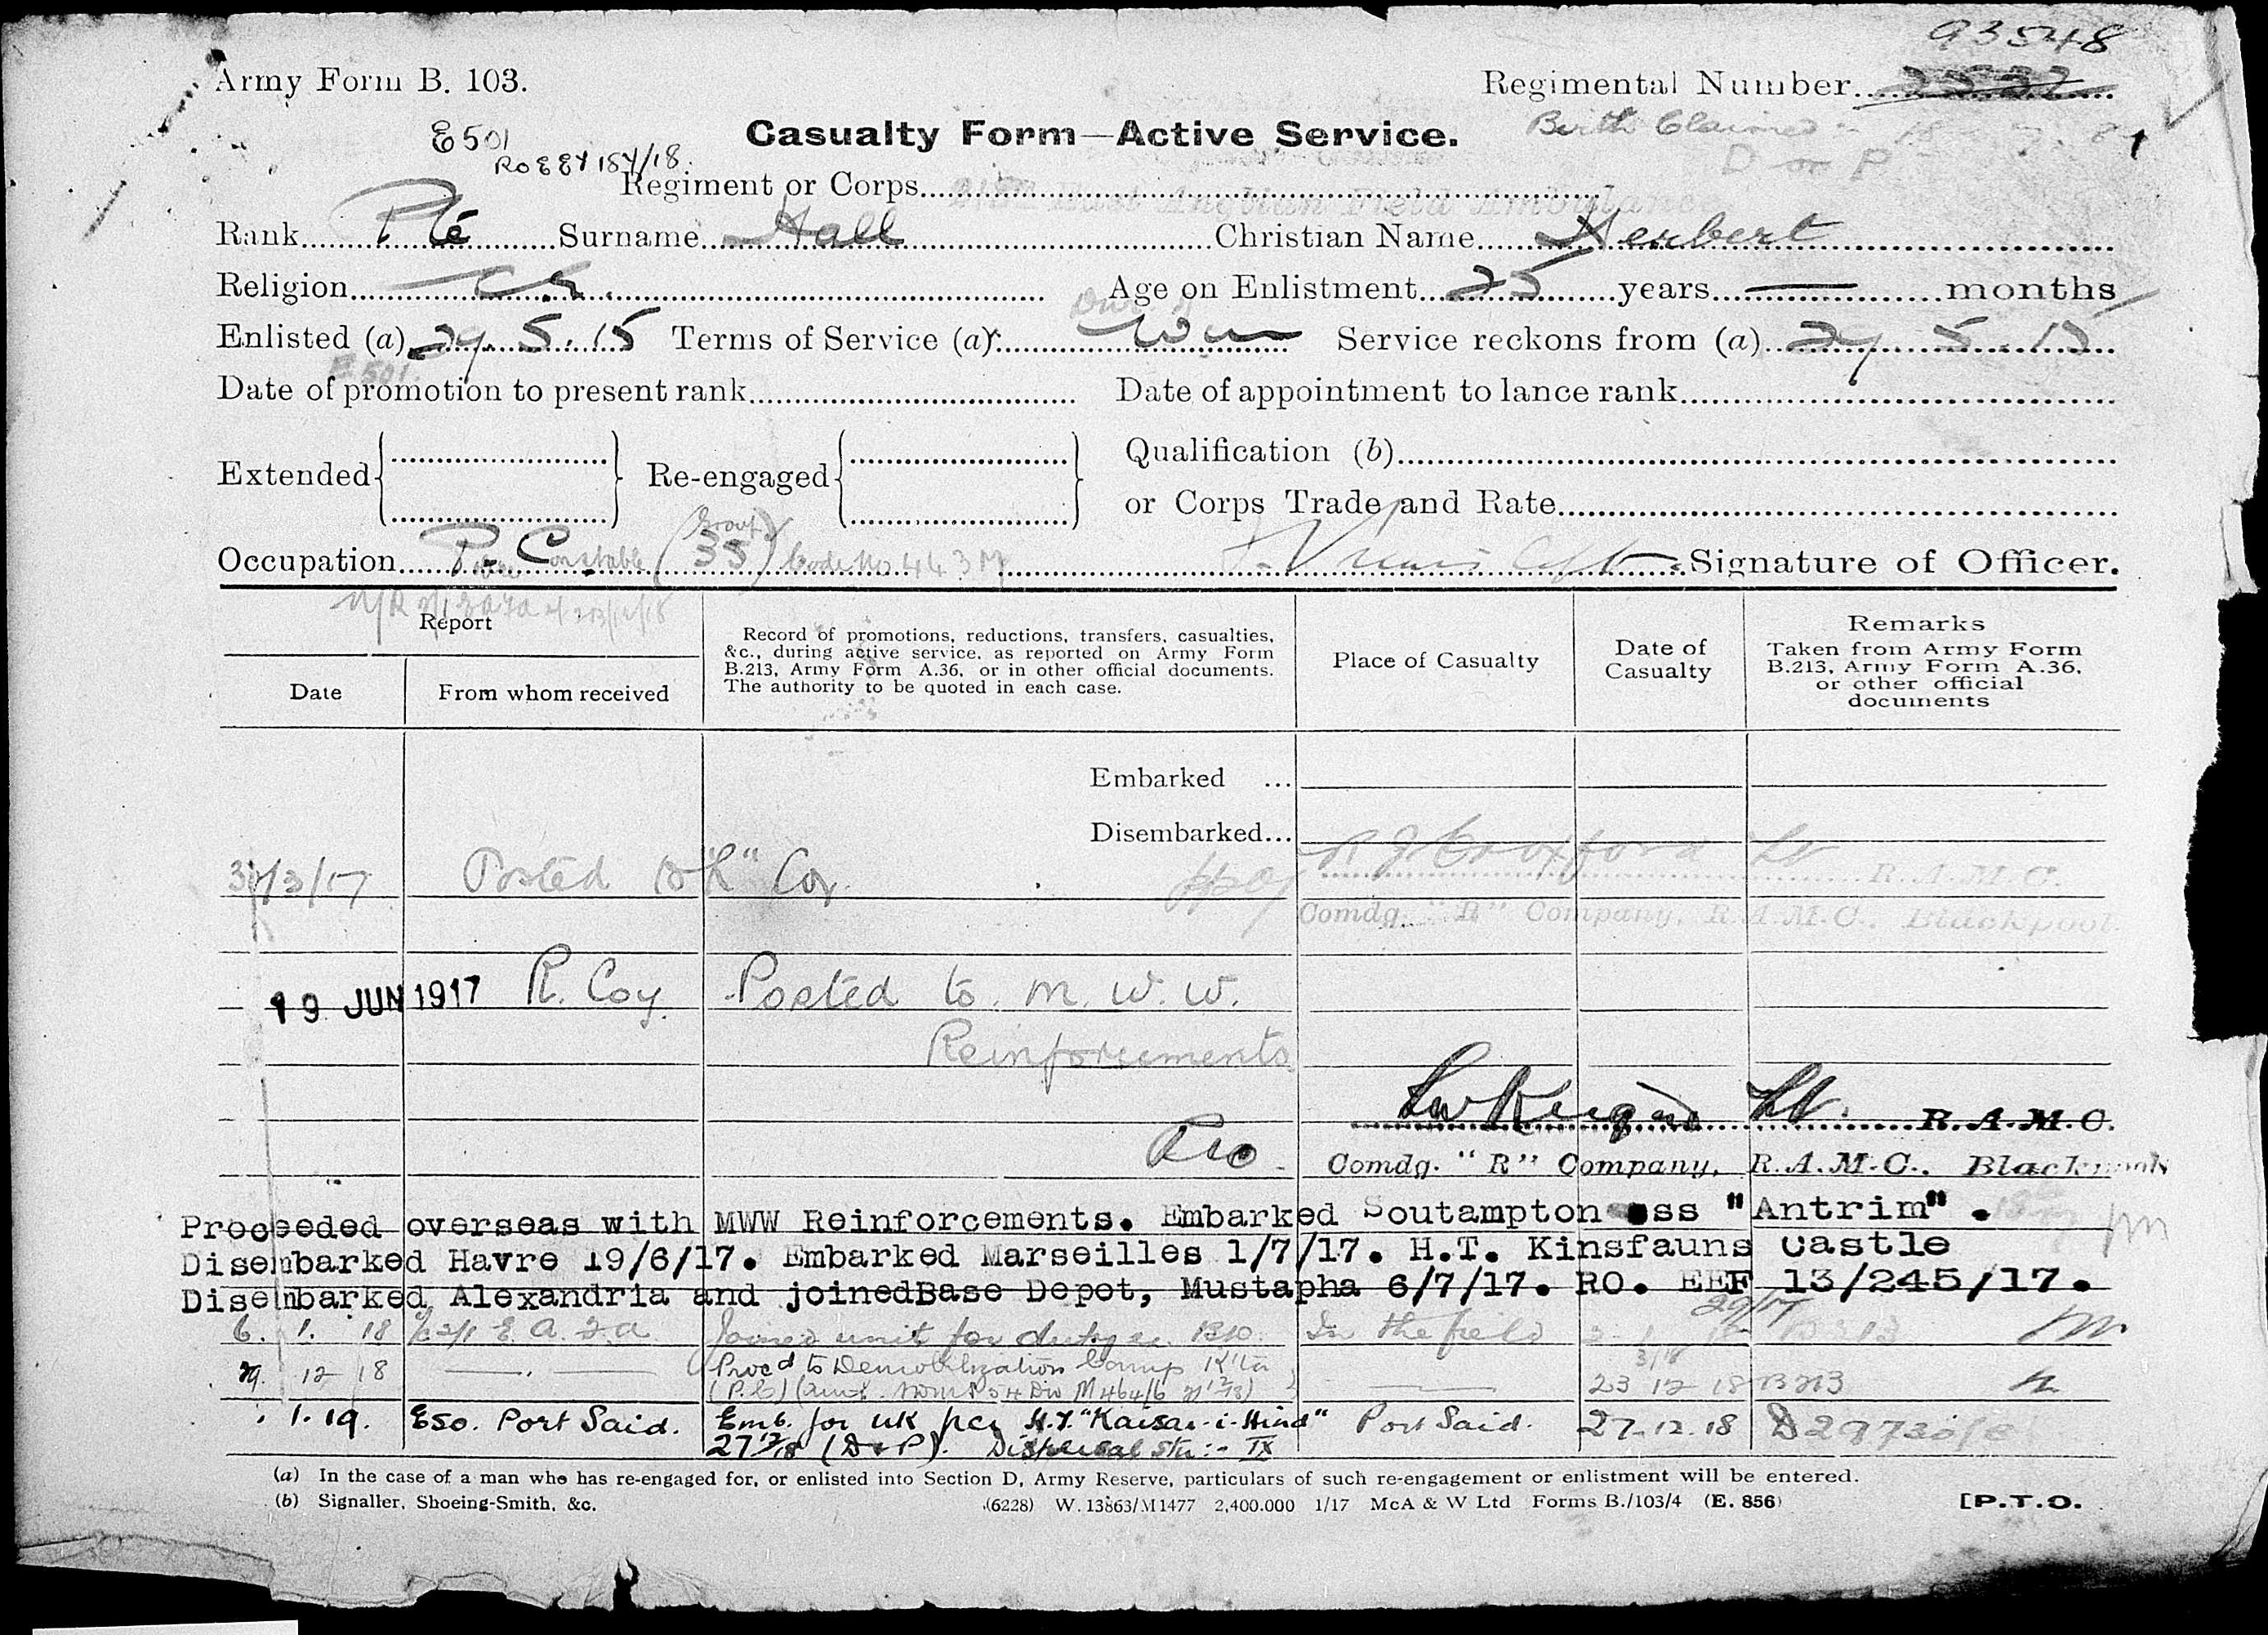 93548
Army Form B. 103.
Regimental Number
Casualty Form—Active Service.
Birth Claimed
E501
D or P
Regiment or Corps
Rank Pte Surname Hall Christian Name Herbert
Religion Age on Enlistment 25 years — months
Enlisted (a) 29.5.15 Terms of Service (a) Service reckons from (a) 29 5.15
E.501.
Date of promotion to present rank Date of appointment to lance rank
Extended Re-engaged Qualification (b)
or Corps Trade and Rate
Group
Occupation Police Constable (35) Code No 443 Signature of Officer.
Report
Record of promotions, reductions, transfers, casualties, &c., during active service, as reported on Army Form B.213, Army Form A.36, or in other official documents. The authority to be quoted in each case.
Place of Casualty
Date of Casualty
Remarks
Taken from Army Form B.213, Army Form A.36, or other official documents
Date
From whom received
Embarked ...
Disembarked...
Posted to "R" Coy. R J Croxford Lt
R.A.M.C.
Comdg. "R" Company, R.A.M.C., Blackpool.
19 JUN 1917 R. Coy Posted to M.W.W.
Reinforcements
Lt. R.A.M.C.
Comdg. "R" Company, R.A.M.C., Blackpool
Proceeded overseas with MWW Reinforcements. Embarked Soutampton ss "Antrim".
Disembarked Havre 19/6/17. Embarked Marseilles 1/7/17. H.T. Kinsfauns Castle
Disembarked Alexandria and joinedBase Depot, Mustapha 6/7/17. RO. EEF 13/245/17.
6. 1. 18 2/1 E.A.F.A. Joined unit for duty In the field
29. 12 18 Procd to Demobilization Camp 23 12 18 B213
1.19. ESO. Port Said. Emb. for UK per H.T. "Kaisar-i-Hind" Port Said. 27.12.18
27/12/18 (D & P). Dispersal Stn:- IX
(a) In the case of a man who has re-engaged for, or enlisted into Section D, Army Reserve, particulars of such re-engagement or enlistment will be entered.
(b) Signaller, Shoeing-Smith, &c.
(6228) W. 13863/M1477 2,400.000 1/17 McA & W Ltd Forms B./103/4 (E. 856)
[P.T.O.